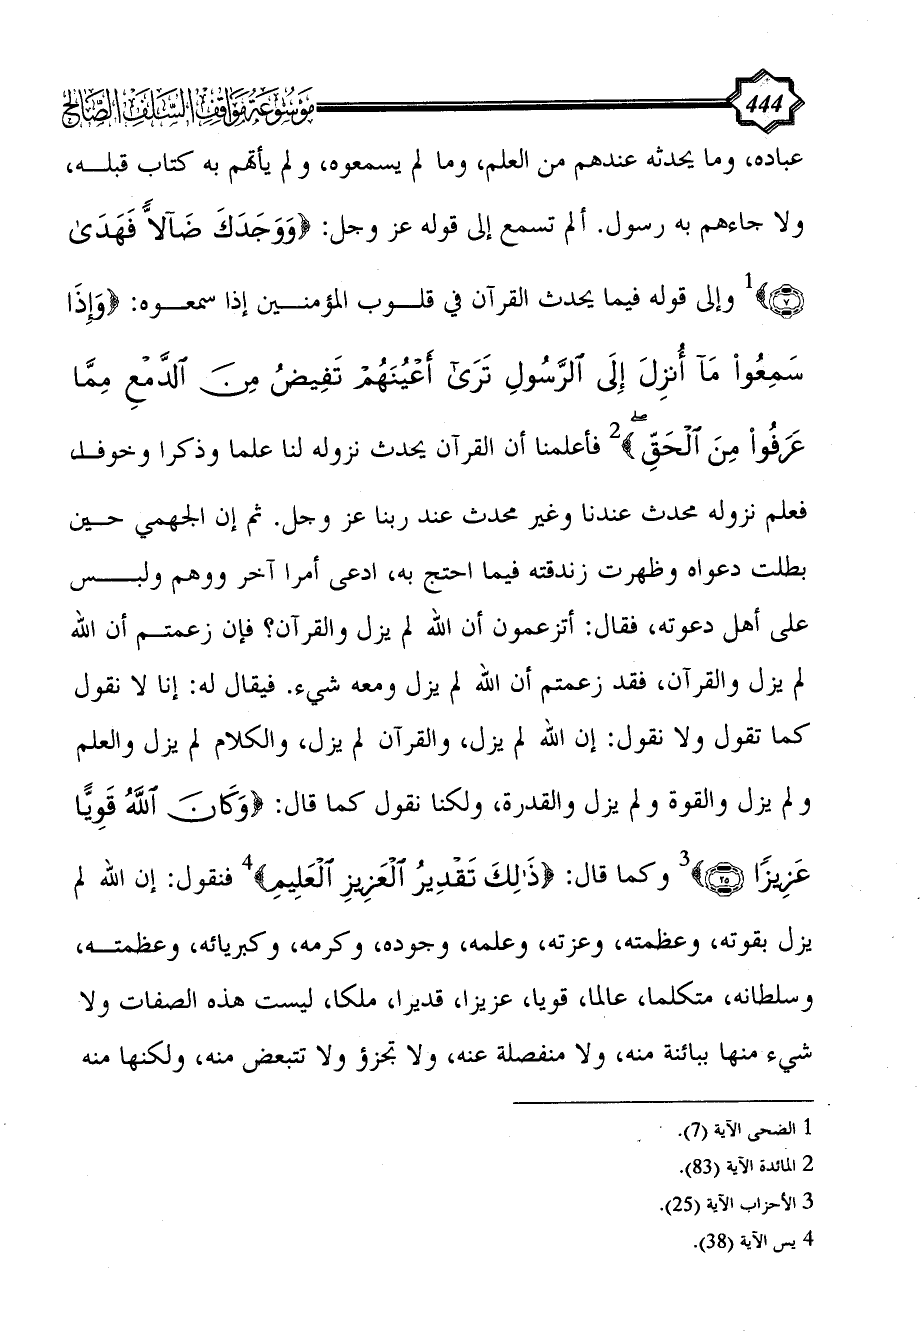 444 موسوعة مواقف السلف الصالح
عباده، وما يحدثه عندهم من العلم، وما لم يسمعوه، ولم يأتهم به كتاب قبله،
ولا جاءهم به رسول. ألم تسمع إلى قوله عز وجل: ﴿وَوَجَدَكَ ضَآلًّا فَهَدَىٰ
۝٧﴾1 وإلى قوله فيما يحدث القرآن في قلوب المؤمنين إذا سمعوه: ﴿وَإِذَا
سَمِعُوا۟ مَآ أُنزِلَ إِلَى ٱلرَّسُولِ تَرَىٰٓ أَعْيُنَهُمْ تَفِيضُ مِنَ ٱلدَّمْعِ مِمَّا
عَرَفُوا۟ مِنَ ٱلْحَقِّ ۖ﴾2 فأعلمنا أن القرآن يحدث نزوله لنا علما وذكرا وخوفا،
فعلم نزوله محدث عندنا وغير محدث عند ربنا عز وجل. ثم إن الجهمي حين
بطلت دعواه وظهرت زندقته فيما احتج به، ادعى أمرا آخر ووهم ولبس
على أهل دعوته، فقال: أتزعمون أن الله لم يزل والقرآن؟ فإن زعمتم أن الله
لم يزل والقرآن، فقد زعمتم أن الله لم يزل ومعه شيء. فيقال له: إنا لا نقول
كما تقول ولا نقول: إن الله لم يزل، والقرآن لم يزل، والكلام لم يزل والعلم
ولم يزل والقوة ولم يزل والقدرة، ولكنا نقول كما قال: ﴿وَكَانَ ٱللَّهُ قَوِيًّا
عَزِيزًا ۝٢٥﴾3 وكما قال: ﴿ذَٰلِكَ تَقْدِيرُ ٱلْعَزِيزِ ٱلْعَلِيمِ﴾4 فنقول: إن الله لم
يزل بقوته، وعظمته، وعزته، وعلمه، وجوده، وكرمه، وكبريائه، وعظمته،
وسلطانه، متكلما، عالما، قويا، عزيزا، قديرا، ملكا، ليست هذه الصفات ولا
شيء منها ببائنة منه، ولا منفصلة عنه، ولا تجزؤ ولا تتبعض منه، ولكنها منه
1 الضحى الآية (7).
2 المائدة الآية (83).
3 الأحزاب الآية (25).
4 يس الآية (38).